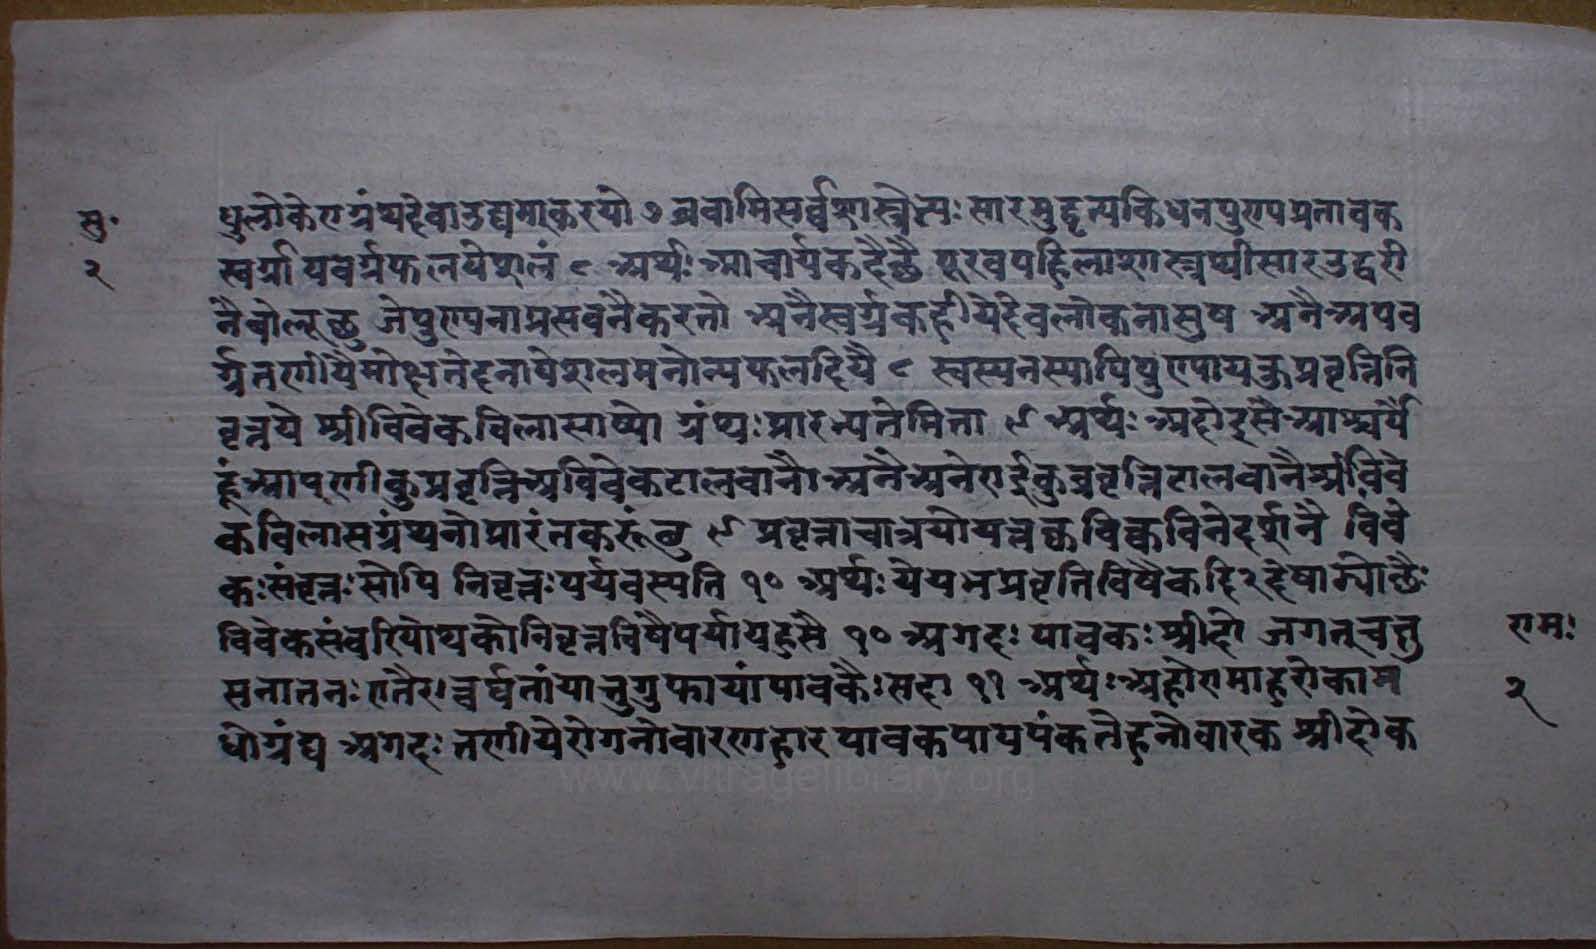 सु॰
२
धुलोकेराग्रंथदेवाउद्यमाकरयो ७ ब्रवामिसर्वशास्त्रेभ्यः सारमुद्धृत्यकिंधनपुण्यप्रसावक
स्वर्गापवर्गफलपेशलं ८ अर्थः आचार्यकहैछै पूरवपहिलाशास्त्रथीसारउद्धरी
नैबोलूछु जेपुण्यनाप्रसवनैकरतो अनैस्वर्गकहीयेदेवलोकनासुष अनैअपव
र्गतणीयैमोक्षतेहनापेशलमनोज्ञफलदियै ८ स्वस्यनस्यापिपुण्यायकुप्रवृत्तिनि
वृत्तये श्रीविवेकविलासाष्यो ग्रंथः प्रारभ्यतेमिता ९ अर्थः अहोइसैआश्चर्यै
हूंआपणीकुप्रवृत्तिअविवेकटालवानै अनैअनेराईकुप्रवृत्तिटालवानैअंविवे
कविलासग्रंथनोप्रारंभकरूंछु ९ प्रवृत्तावात्रयोयत्नक्वचित्क्वचिनेदर्शनै विवे
कःसंवृत्तः सोपि निवृत्तः पर्यवस्यति १० अर्थः येयभप्रवृतिविषैकहि२देषाम्योछैः
विवेकसंवरियोथकोनिवृत्तविषैपर्यायहुसै १० अगदः पावकः श्रीदो जगतूचक्षु
सनातनः एतैरावर्षतांयातुगुफायांपावकैः सदा ११ अर्थः अहोरामाहरोकाम
धोग्रंथ अगदः तणीयेरोगनोवारणहार पावकपापपंकतेहनोवारक श्रीदोक
राम:
२
www.vitragelibrary.org